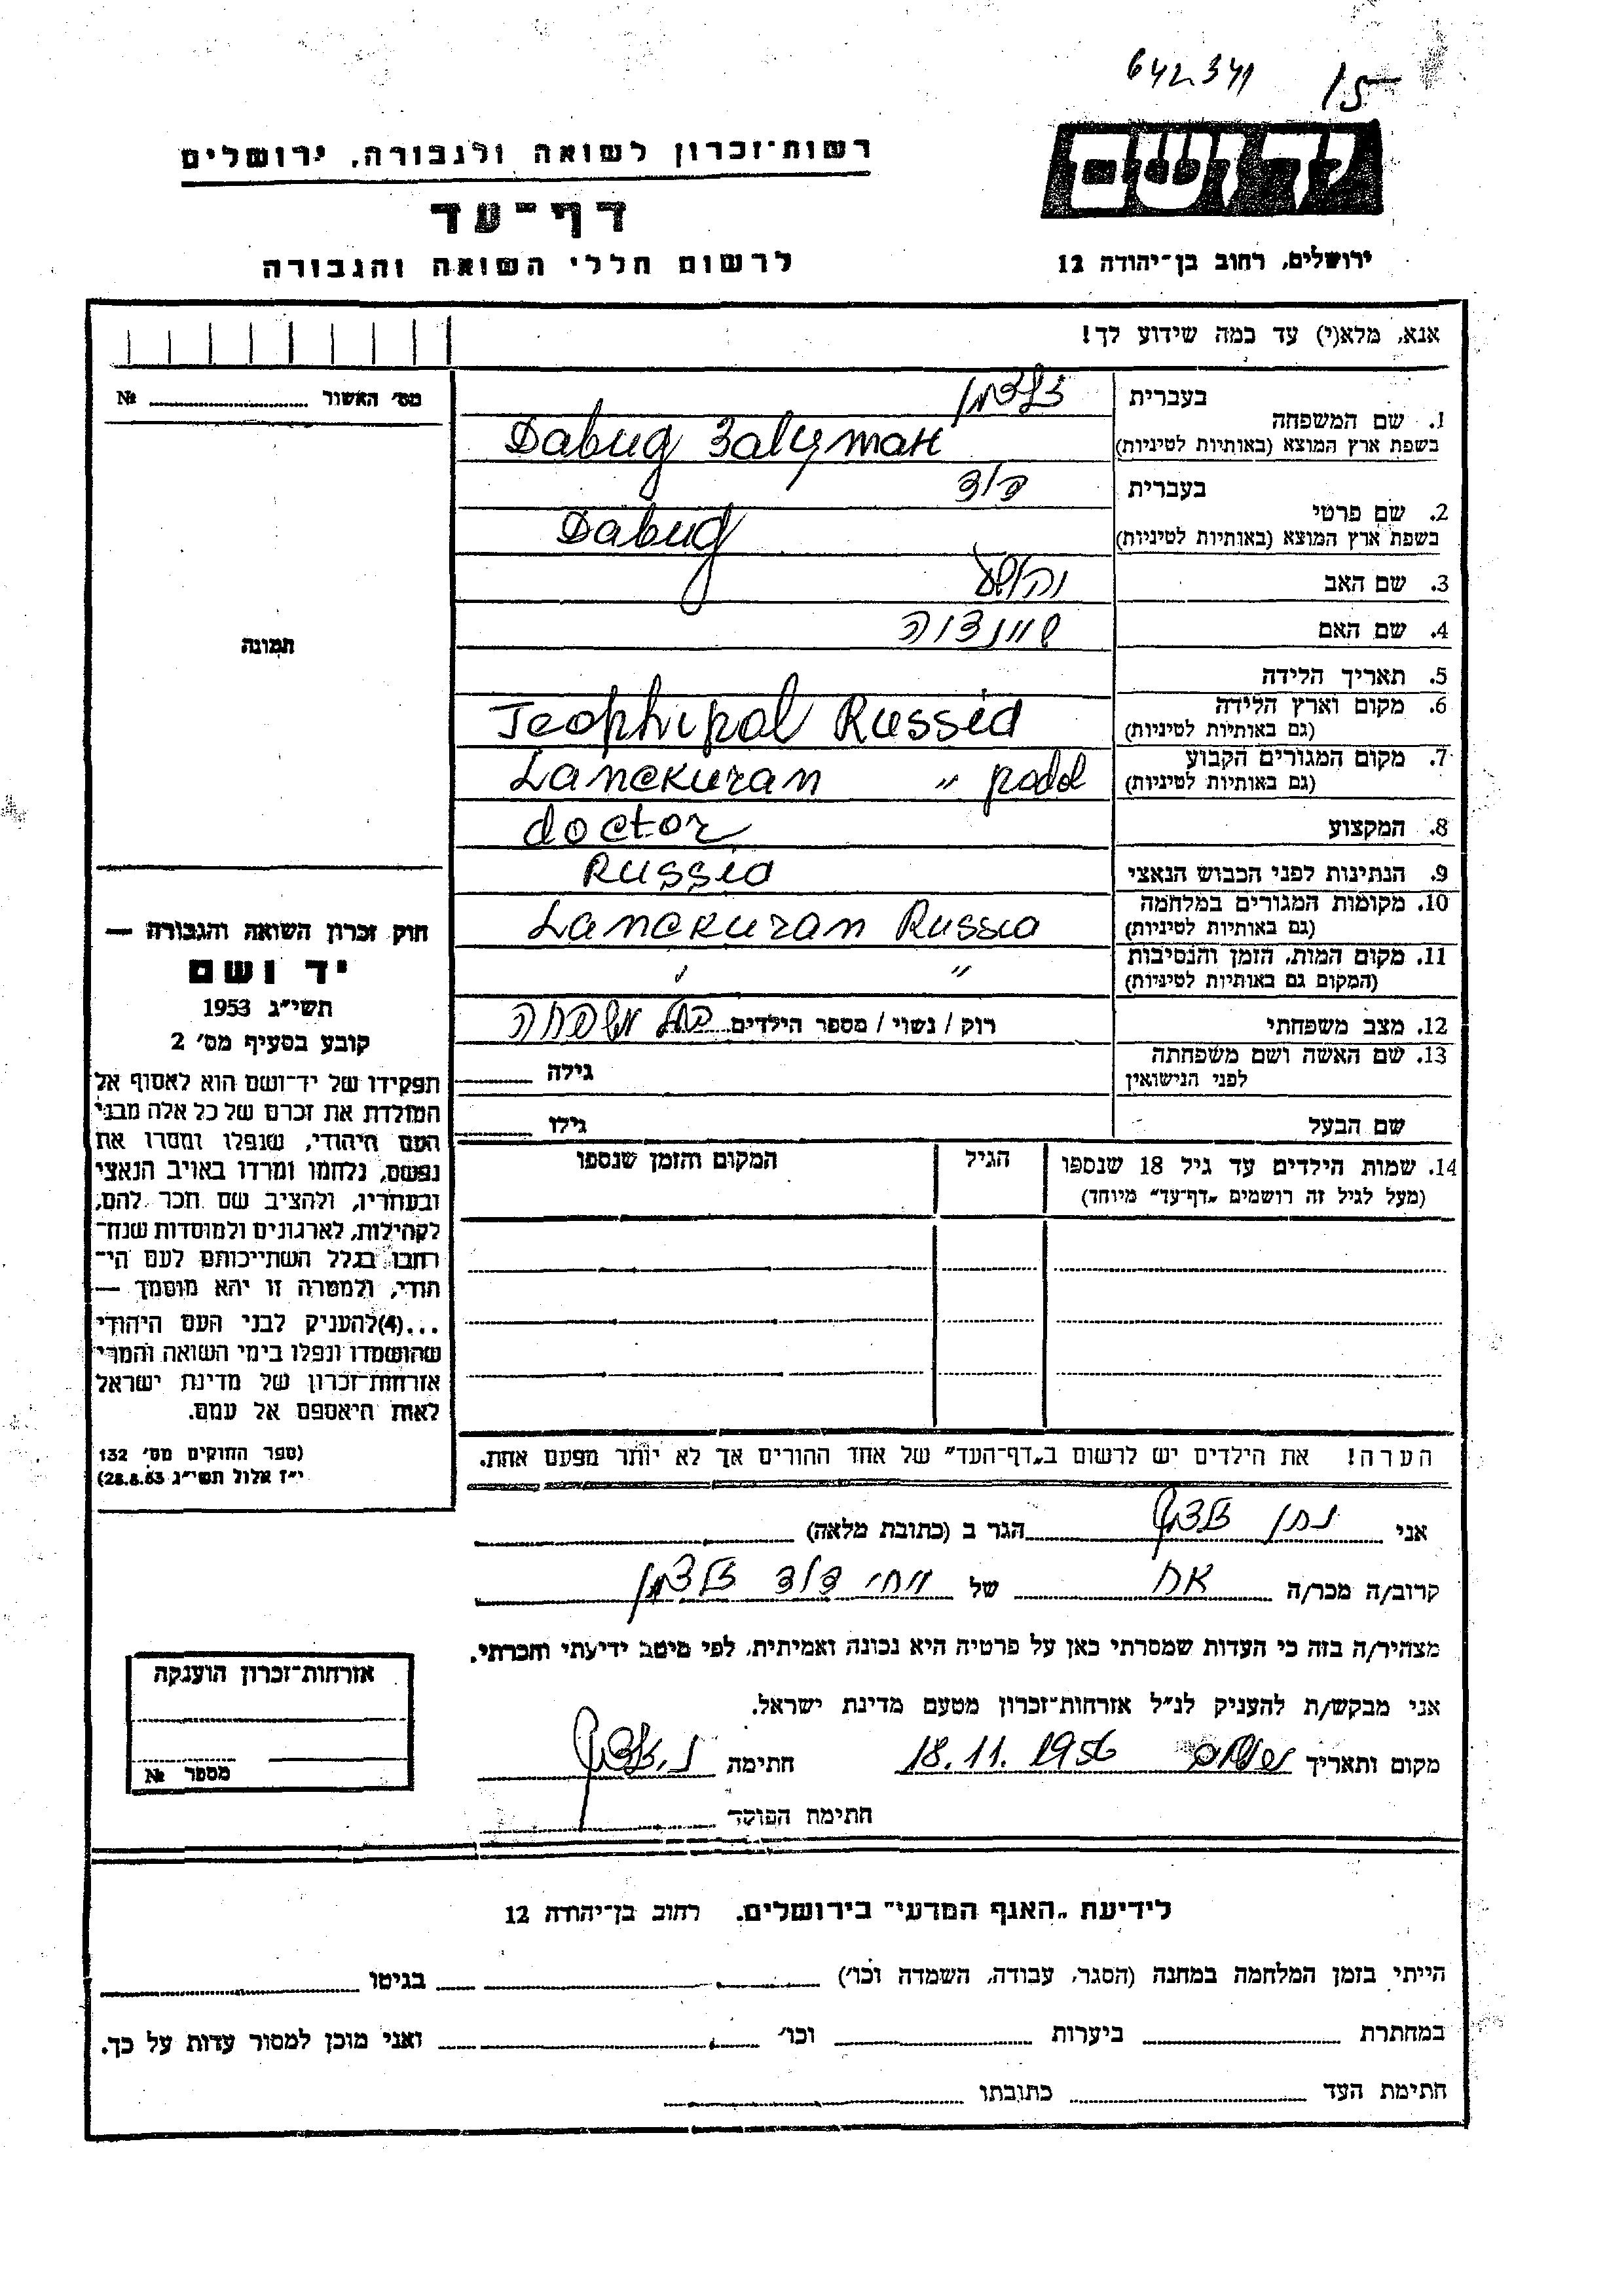 642341 15
רשות־זכרון לשואה ולגבורה, ירושלים
דף־עד
לרשום חללי השואה והגבורה
יד ושם
ירושלים, רחוב בן־יהודה 12
אנא, מלא(י) עד כמה שידוע לך!
מס׳ האשור № 
תמונה
1. שם המשפחה
בעברית זלצמן
בשפת ארץ המוצא (באותיות לטיניות) Давид Залцман
2. שם פרטי
בעברית דוד
בשפת ארץ המוצא (באותיות לטיניות) Давид
3. שם האב יהושע
4. שם האם
5. תאריך הלידה
6. מקום וארץ הלידה
(גם באותיות לטיניות) Teophipol Russia
7. מקום המגורים הקבוע
(גם באותיות לטיניות) Lanckuran " podol
8. המקצוע doctor
9. הנתינות לפני הכבוש הנאצי Russia
10. מקומות המגורים במלחמה
(גם באותיות לטיניות) Lanckuran Russia
11. מקום המות, הזמן והנסיבות
(המקום גם באותיות לטיניות) " "
12. מצב משפחתי רוק / נשוי / מספר הילדים בעל משפחה
13. שם האשה ושם משפחתה
לפני הנישואין
גילה
שם הבעל גילו
14. שמות הילדים עד גיל 18 שנספו
(מעל לגיל זה רושמים „דף־עד״ מיוחד)
הגיל
המקום והזמן שנספו
הערה! את הילדים יש לרשום ב„דף־העד״ של אחד ההורים אך לא יותר מפעם אחת.
חוק זכרון השואה והגבורה —
יד ושם
תשי״ג 1953
קובע בסעיף מס׳ 2
תפקידו של יד־ושם הוא לאסוף אל
המולדת את זכרם של כל אלה מבני
העם היהודי, שנפלו ומסרו את
נפשם, נלחמו ומרדו באויב הנאצי
ובעוזריו, ולהציב שם וזכר להם,
לקהילות, לארגונים ולמוסדות שנח־
רבו בגלל השתייכותם לעם הי־
הודי, ולמטרה זו יהא מוסמך —
...(4)להעניק לבני העם היהודי
שהושמדו ונפלו בימי השואה והמרי
אזרחות־זכרון של מדינת ישראל
לאות היאספם אל עמם.
(ספר החוקים מס׳ 132
י״ז אלול תשי״ג 28.8.53)
אני נתן זלצמן הגר ב (כתובת מלאה)
קרוב/ה מכר/ה אח של אחי דוד זלצמן
מצהיר/ה בזה כי העדות שמסרתי כאן על פרטיה היא נכונה ואמיתית, לפי מיטב ידיעתי והכרתי.
אני מבקש/ת להעניק לנ״ל אזרחות־זכרון מטעם מדינת ישראל.
מקום ותאריך 18.11.1956 חתימה נ. זלצמן
חתימת הפוקד
אזרחות־זכרון הוענקה
מספר №
לידיעת „האגף המדעי״ בירושלים, רחוב בן־יהודה 12
הייתי בזמן המלחמה במחנה (הסגר, עבודה, השמדה וכו׳) בגיטו
במחתרת ביערות וכו׳ ואני מוכן למסור עדות על כך.
חתימת העד כתובתו